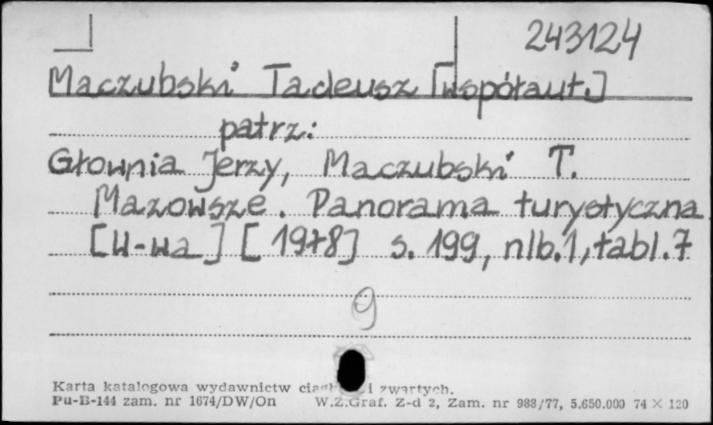 243124
Maczubski Tadeusz [współaut.]
patrz:
Głownia Jerzy, Maczubski T.
Mazowsze. Panorama turystyczna
[W-wa] [1978] s. 199, nlb.1, tabl.7
9
Karta katalogowa wydawnictw i zwartych.
Pu-B-144 zam. nr 1674/DW/On W.Z.Graf. Z-d 2, Zam. nr 988/77, 5.650.000 74 × 120